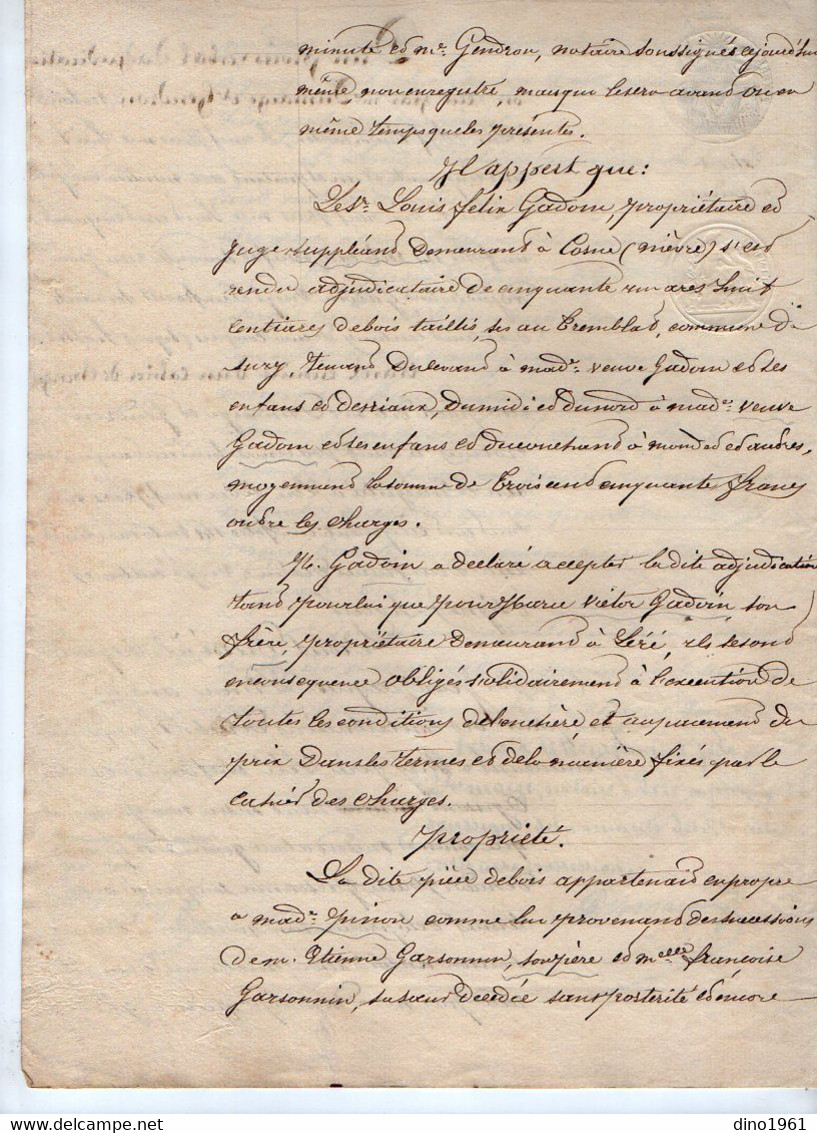 minute et Me. Gendron, notaire soussignés cejourd'hui
même non enregistré, mais qui le sera avant ou en
même temps que les présentes.
Il appert que:
Le Sr. Louis félix Gadoin, propriétaire et
juge suppléant demeurant à Cosne (nièvre) s'est
rendu adjudicataire de cinquante un ares huit
centiares de bois taillis, sis au Tremblat, commune de
Sury, tenant du levant à made. veuve Gadoin et ses
enfans et Desriaux, du midi et du nord à made. veuve
Gadoin et ses enfans et du couchant à et autres,
moyennant la somme de trois cent cinquante francs
outre les charges.
M. Gadoin a déclaré accepter la dite adjudication
tant pour lui que pour Marie Victor Gadoin, son
frère, propriétaire demeurant à Léré, ils se sont
en conséquence obligés solidairement à l'exécution de
toutes les conditions de l'enchère et au paiement du
prix dans les termes et de la manière fixés par le
cahier des charges.
Propriété.
La dite pièce de bois appartenait en propre
à made. pinon comme lui provenant des successions
de m. Etienne Garsonnin, son père et melle françoise
Garsonnin, sa sœur décédée sans postérité et encore
dino1961